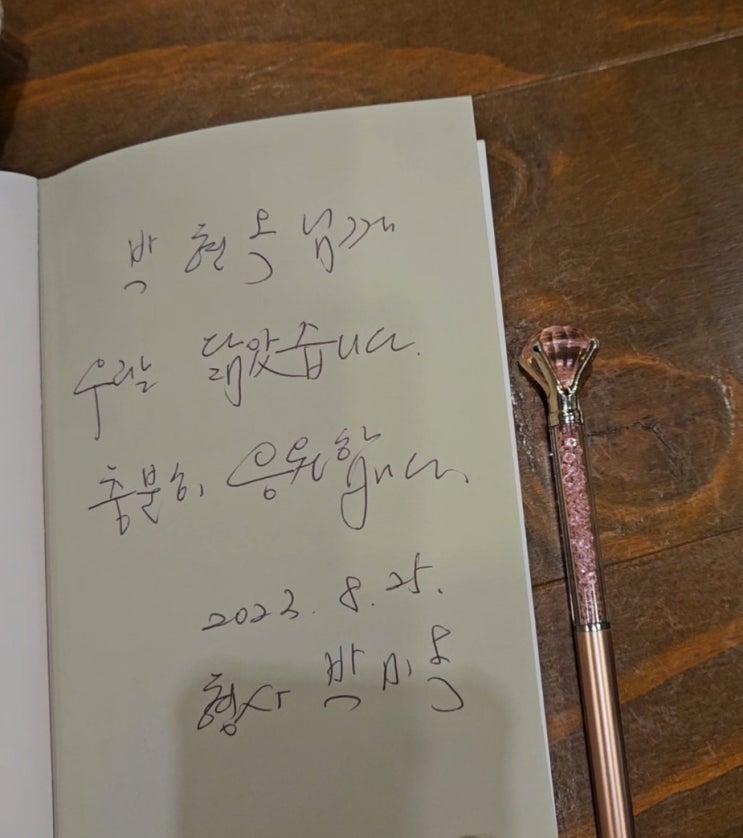 박현옥 님께
우린 닮았습니다.
충분히 응원합니다.
2023. 8. 25.
형사 박미옥